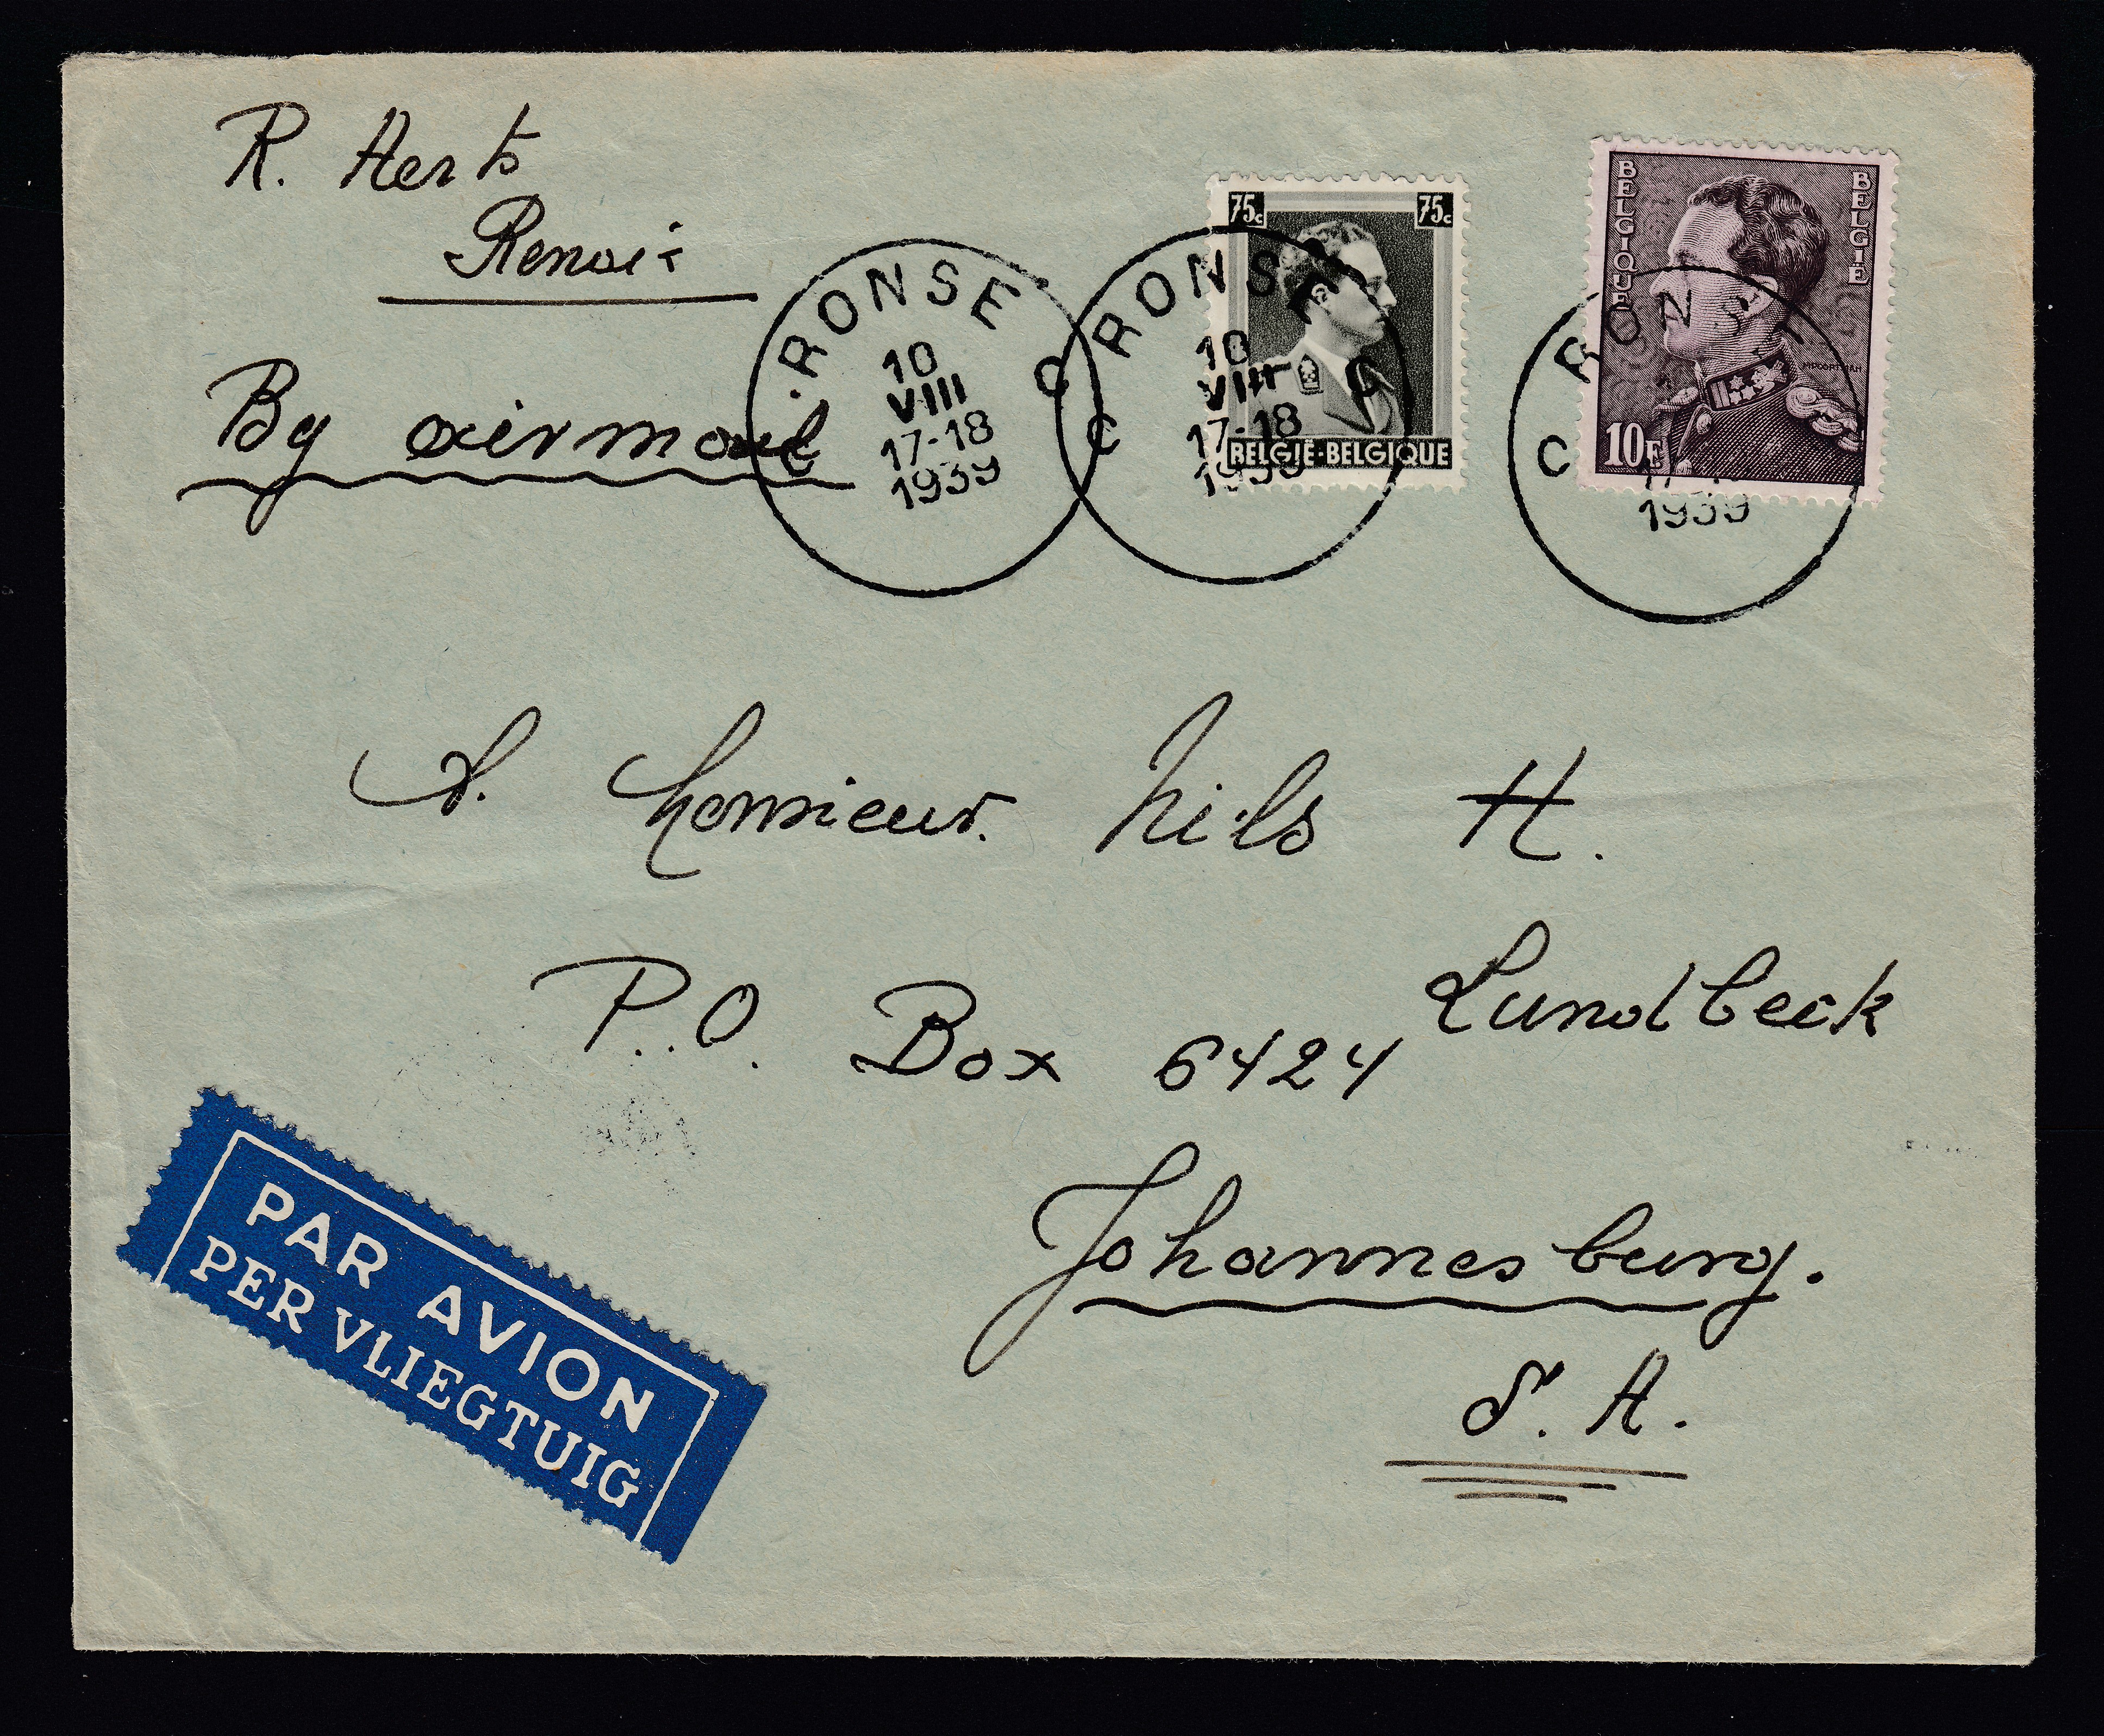 R. Aerts
Renaix
By airmail
C RONSE C
10
VIII
17-18
1939
C RONSE C
10
VIII
17-18
1939
75c 75c
BELGIË-BELGIQUE
BELGIQUE
BELGIË
10F
C RONSE
1939
A. Monsieur. Nils H.
Lundbeck
P.O. Box 6424
Johannesburg.
S. A.
PAR AVION
PER VLIEGTUIG